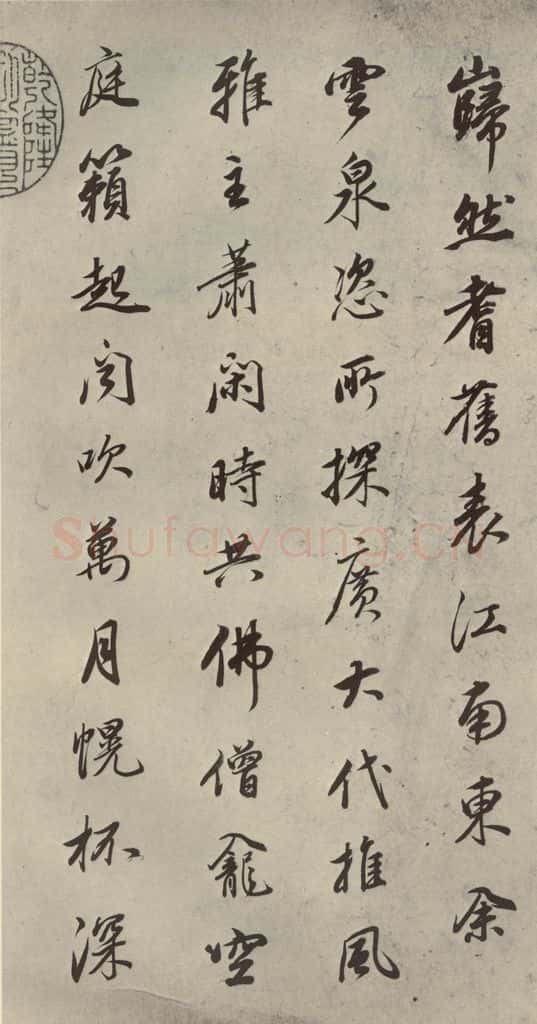 巋然耆舊表江南東佘
雲泉恣所探廣大代推風
雅主蕭閑時共佛僧龕空
庭籟起聞吹萬月幌杯深
乾隆
Shufawang.cn